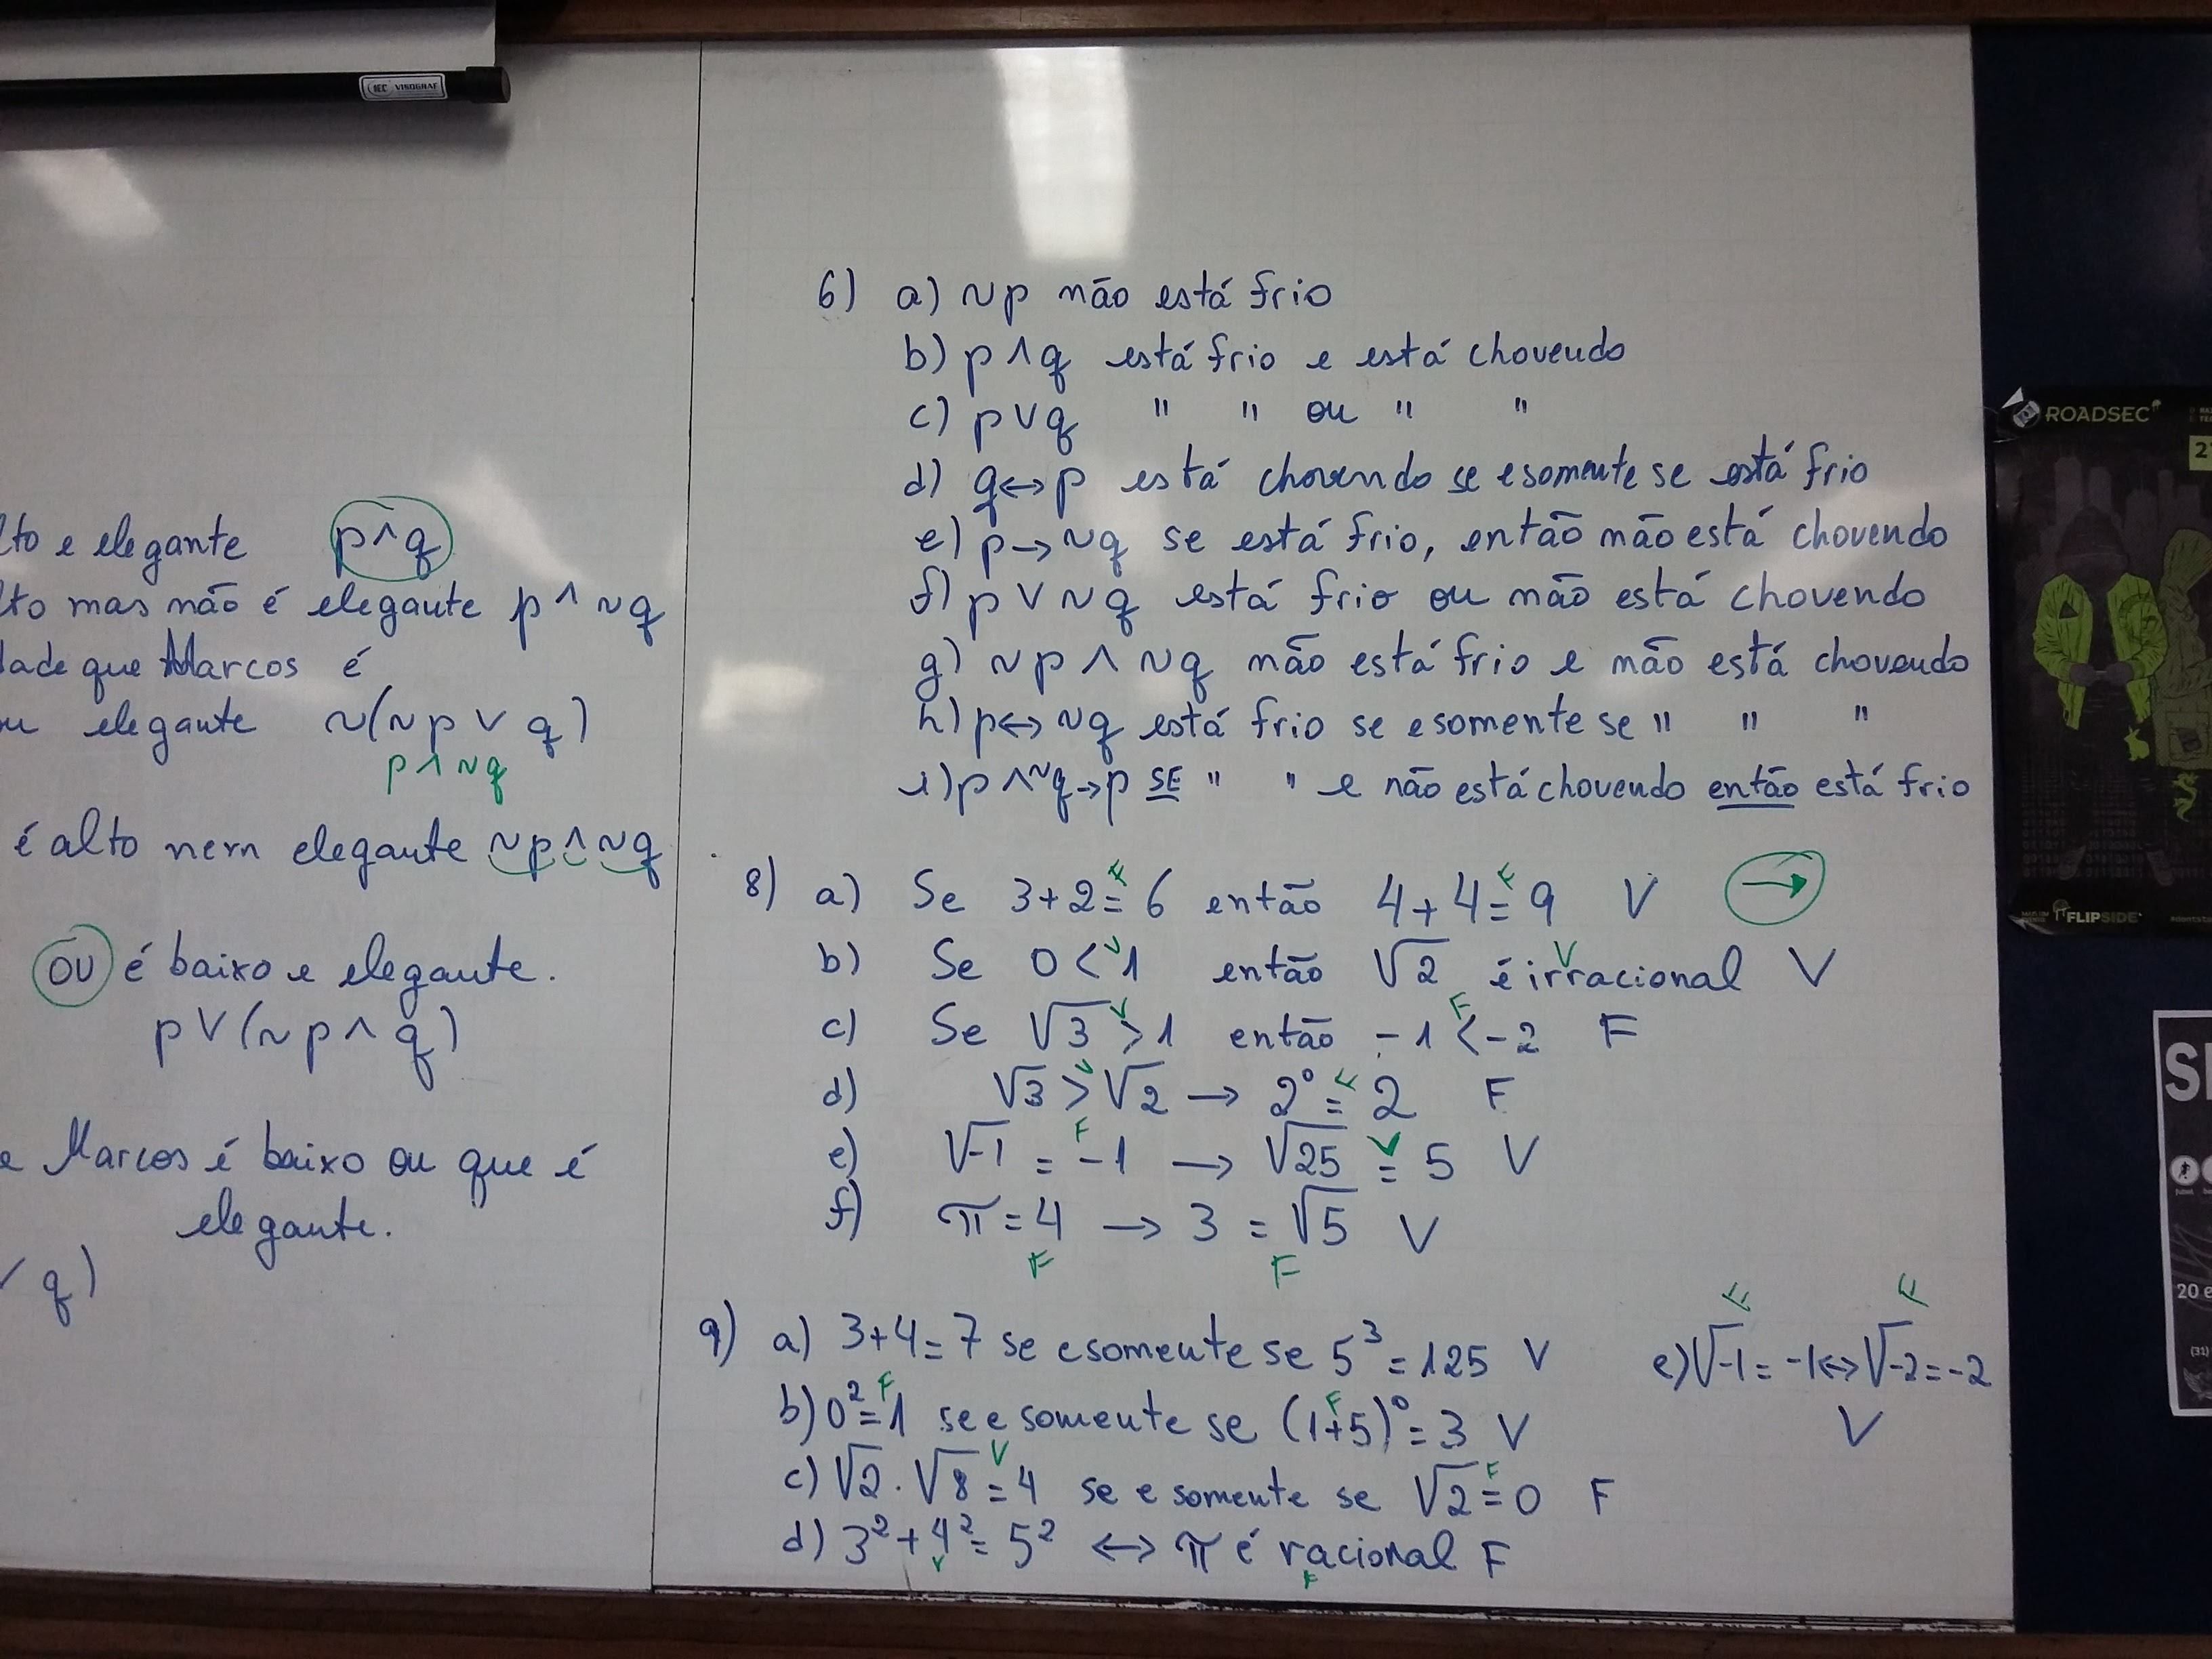 IEC VISOGRAF
lto e elegante p∧q
lto mas não é elegante p∧~q
dade que Marcos é
ou elegante ~(~p∨q)
p∧~q
é alto nem elegante ~p∧~q
OU é baixo e elegante.
p∨(~p∧q)
e Marcos é baixo ou que é
elegante.
∨ q)
6) a) ~p não está frio
b) p∧q está frio e está chovendo
c) p∨q " " ou " "
d) q↔p está chovendo se e somente se está frio
e) p→~q se está frio, então não está chovendo
f) p∨~q está frio ou não está chovendo
g) ~p∧~q não está frio e não está chovendo
h) p↔~q está frio se e somente se " " "
i) p∧~q→p SE " " e não está chovendo então está frio
8) a) Se 3+2=6 então 4+4=9 V →
F F
b) Se 0<1 então √2 é irracional V
V V
c) Se √3>1 então -1<-2 F
V F
d) √3>√2 → 2⁰=2 F
V F
e) √-1=-1 → √25=5 V
F V
f) π=4 → 3=√5 V
F F
9) a) 3+4=7 se e somente se 5³=125 V
b) 0²=1 se e somente se (1+5)⁰=3 V
F F
c) √2.√8=4 se e somente se √2=0 F
V F
d) 3²+4²=5² ↔ π é racional F
V F
F F
e) √-1=-1↔√-2=-2
V
ROADSEC
FLIPSIDE
20 e
(31)